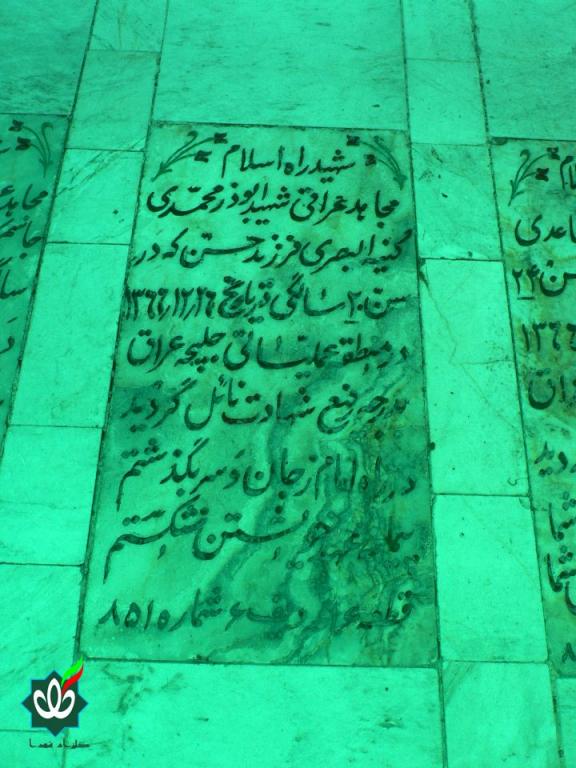 شهید راه اسلام
مجاهد عراقی شهید ابوذر محمدی
کنیه البصری فرزند حسن که در
سن ۲۰ سالگی در تاریخ ۱۳۶۶,۱۲,۲۶
در منطقه عملیاتی حلبچه عراق
بدرجه رفیع شهادت نائل گردید
در راه امام ز جان و سر بگذشتم
پیمانه خویشتن نشکستم
قطعه ردیف ۶ شماره ۸۵۱
مجاهد
ساعدی
سن ۲۴
۱۳۶۶
عراق
گلزار شهدا